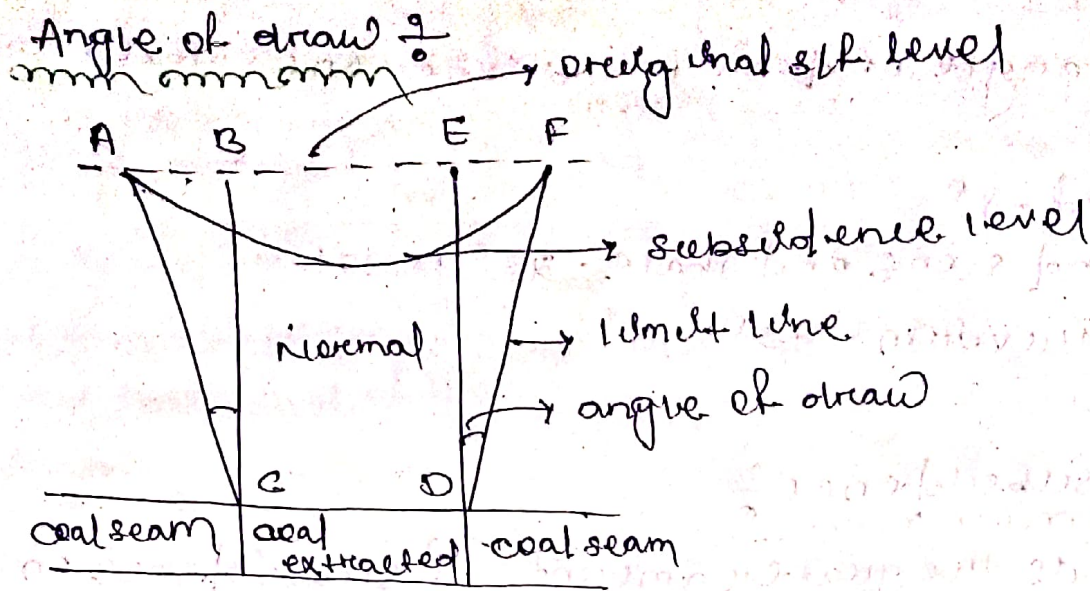 Angle of draw :-
original s/f. level
A B E F
subsidence level
Normal
limit line
angle of draw
C D
coal seam
coal extracted
coal seam